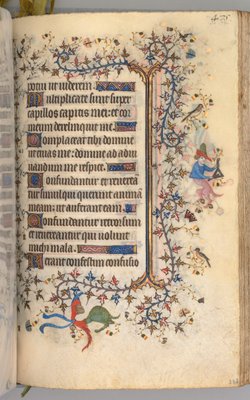 potui ut viderem.
Multiplicate sunt super
capillos capitis mei: et cor
meum dereliquit me.
Complaceat tibi domine
ut eruas me: domine ad adiu
vandum me respice.
Confundantur et reverēā
tur simul qui querunt animā
meam: ut auferant eam.
Confundantur retrorsum
et revereantur qui volunt
michi mala.
Ferant confestim confusio